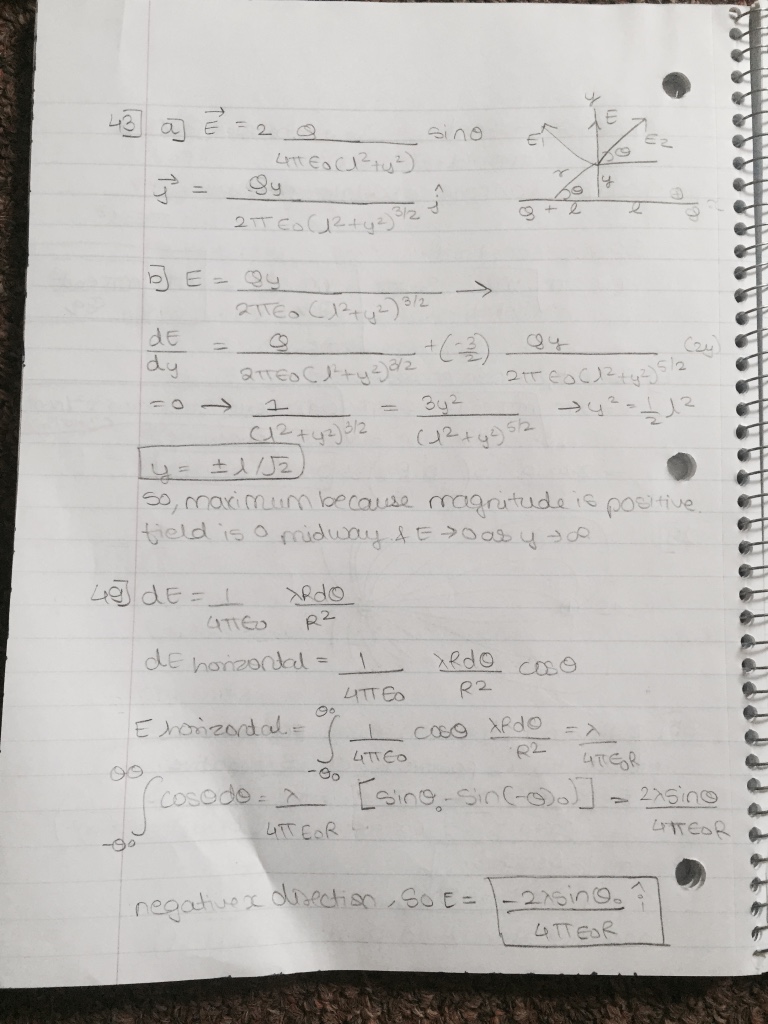 43] a] E⃗ = 2 Q/(4πε₀(l²+y²)) sinθ
y E
E₁ E₂
θ
r θ y
Q + l l Q
y⃗ = Qy/(2πε₀(l²+y²)^3/2) ĵ
b] E = Qy/(2πε₀(l²+y²)^3/2) →
dE/dy = Q/(2πε₀(l²+y²)^3/2) + (-3/2) Qy/(2πε₀(l²+y²)^5/2) (2y)
= 0 → 1/(l²+y²)^3/2 = 3y²/(l²+y²)^5/2 → y² = ½ l²
y = ± l/√2
so, maximum because magnitude is positive.
field is 0 midway & E → 0 as y → ∞
49] dE = 1/(4πε₀) λRdθ/R²
dE horizontal = 1/(4πε₀) λRdθ/R² cosθ
E horizontal = ∫_{-θ₀}^{θ₀} 1/(4πε₀) cosθ λRdθ/R² = λ/(4πε₀R)
∫_{-θ₀}^{θ₀} cosθdθ = λ/(4πε₀R) [sinθ₀ - sin(-θ)₀)] = 2λsinθ/(4πε₀R)
negative x direction, so E = -2λsinθ₀/(4πε₀R) î